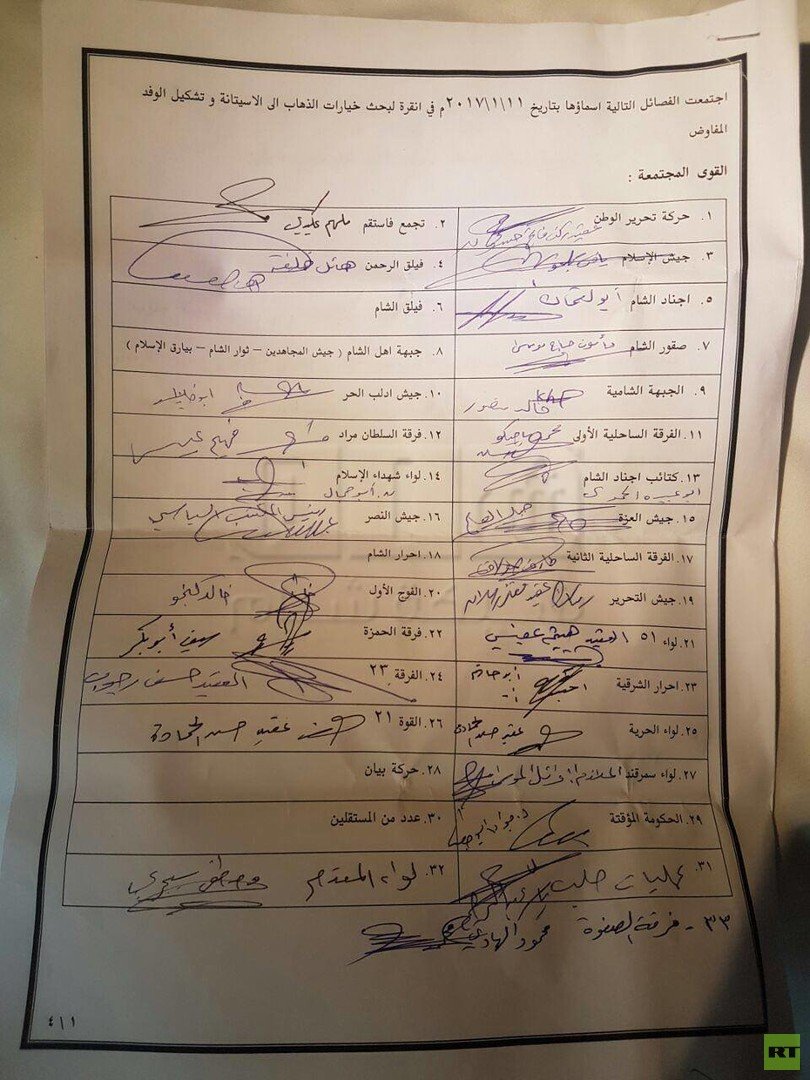 اجتمعت الفصائل التالية اسماؤها بتاريخ ٢٠١٧\١\١١م في انقرة لبحث خيارات الذهاب الى الاسيتانة و تشكيل الوفد
المفاوض
القوى المجتمعة :
١. حركة تحرير الوطن
٢. تجمع فاستقم ملهم عكيدي
٣. جيش الإسلام
٤. فيلق الرحمن همائل خليفة
٥. اجناد الشام
٦. فيلق الشام
٧. صقور الشام مأمون حاج موسى
٨. جبهة اهل الشام ( جيش المجاهدين – ثوار الشام – بيارق الإسلام )
٩. الجبهة الشامية
خالد منصور
١٠. جيش ادلب الحر
١١. الفرقة الساحلية الأولى محمد حاجيكو
١٢. فرقة السلطان مراد فهيم عيسى
١٣. كتائب اجناد الشام
١٤. لواء شهداء الإسلام
أبو جمال
١٥. جيش العزة
١٦. جيش النصر رئيس المكتب السياسي
١٧. الفرقة الساحلية الثانية
١٨. احرار الشام
١٩. جيش التحرير
٢٠. الفوج الأول
٢١. لواء ٥١ العقيد هيثم عفيسي
٢٢. فرقة الحمزة سيف أبو بكر
٢٣. احرار الشرقية أبو حاتم
٢٤. الفرقة ٢٣ العقيد حسن رجوب
٢٥. لواء الحرية عقيد حسن الحمادة
٢٦. القوة ٢١ عقيد حسن الحمادة
٢٧. لواء سمرقند الملازم ا وائل الموسى
٢٨. حركة بيان
٢٩. الحكومة المؤقتة د. جواد أبو حطب
٣٠. عدد من المستقلين
٣١. عمليات حلب
٣٢. لواء المعتصم مصطفى سيجري
٣٣- فرقة الصفوة
محمود الهادي
٤\١
RT